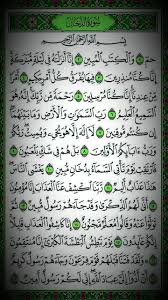 سُورَةُ الدُّخَانِ
بِسْمِ اللَّهِ الرَّحْمَٰنِ الرَّحِيمِ
حمٓ ۝١ وَالْكِتَٰبِ الْمُبِينِ ۝٢ إِنَّا أَنزَلْنَٰهُ فِي لَيْلَةٍ مُّبَٰرَكَةٍ
إِنَّا كُنَّا مُنذِرِينَ ۝٣ فِيهَا يُفْرَقُ كُلُّ أَمْرٍ حَكِيمٍ ۝٤ أَمْرًا
مِّنْ عِندِنَا إِنَّا كُنَّا مُرْسِلِينَ ۝٥ رَحْمَةً مِّن رَّبِّكَ إِنَّهُ هُوَ
السَّمِيعُ الْعَلِيمُ ۝٦ رَبِّ السَّمَٰوَٰتِ وَالْأَرْضِ وَمَا بَيْنَهُمَا
إِن كُنتُم مُّوقِنِينَ ۝٧ لَا إِلَٰهَ إِلَّا هُوَ يُحْيِي وَيُمِيتُ رَبُّكُمْ وَرَبُّ
ءَابَائِكُمُ الْأَوَّلِينَ ۝٨ بَلْ هُمْ فِي شَكٍّ يَلْعَبُونَ ۝٩
فَارْتَقِبْ يَوْمَ تَأْتِي السَّمَاءُ بِدُخَانٍ مُّبِينٍ ۝١٠ يَغْشَى
النَّاسَ هَٰذَا عَذَابٌ أَلِيمٌ ۝١١ رَّبَّنَا اكْشِفْ عَنَّا الْعَذَابَ إِنَّا
مُؤْمِنُونَ ۝١٢ أَنَّىٰ لَهُمُ الذِّكْرَىٰ وَقَدْ جَاءَهُمْ رَسُولٌ مُّبِينٌ ۝١٣ ثُمَّ تَوَلَّوْا
عَنْهُ وَقَالُوا مُعَلَّمٌ مَّجْنُونٌ ۝١٤ إِنَّا كَاشِفُوا الْعَذَابِ قَلِيلًا إِنَّكُمْ
عَائِدُونَ ۝١٥ يَوْمَ نَبْطِشُ الْبَطْشَةَ الْكُبْرَىٰ إِنَّا مُنتَقِمُونَ ۝١٦
وَلَقَدْ فَتَنَّا قَبْلَهُمْ قَوْمَ فِرْعَوْنَ وَجَاءَهُمْ رَسُولٌ كَرِيمٌ ۝١٧
أَنْ أَدُّوا إِلَيَّ عِبَادَ اللَّهِ إِنِّي لَكُمْ رَسُولٌ أَمِينٌ ۝١٨